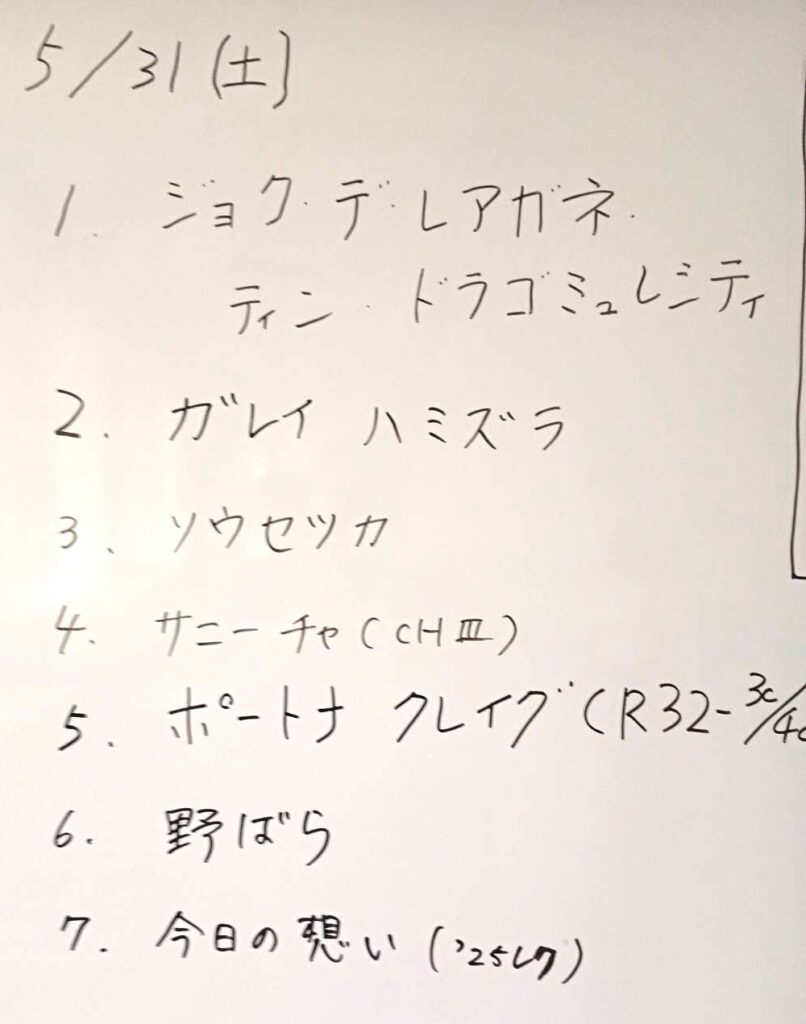 5/31(土)
1. ジョク・デ・レアガネ・
ティン・ドラゴミュレシティ
2. ガレイ ハミズラ
3、ソウセツカ
4. サニーチャ(CHⅢ)
5. ポートナ クレイグ(R32-3c/4c
6. 野ばら
7. 今日の想い('25レク)